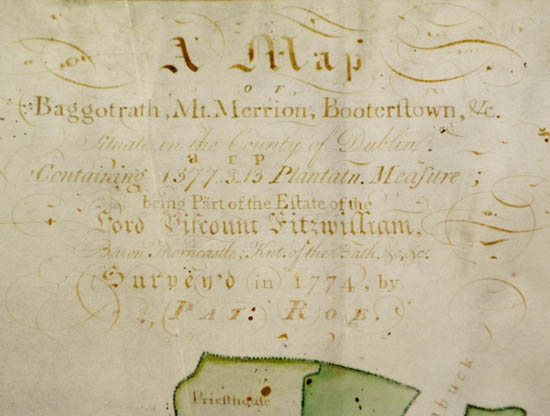 A Map
of
Baggotrath, Mt. Merrion, Booterstown, &c.
Situate in the County of Dublin
a r p
Containing 1377.3.13 Plantatn. Measure;
being Part of the Estate of the
Lord Viscount Fitzwilliam,
Baron Thorncastle, Knt. of the Bath, &c. &c.
Survey'd in 1774, by
PAT: ROE.
Priesthouse